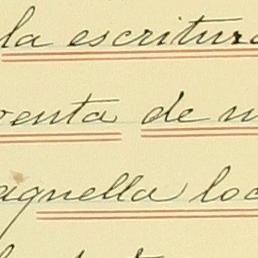 la escritura
venta de
aquella